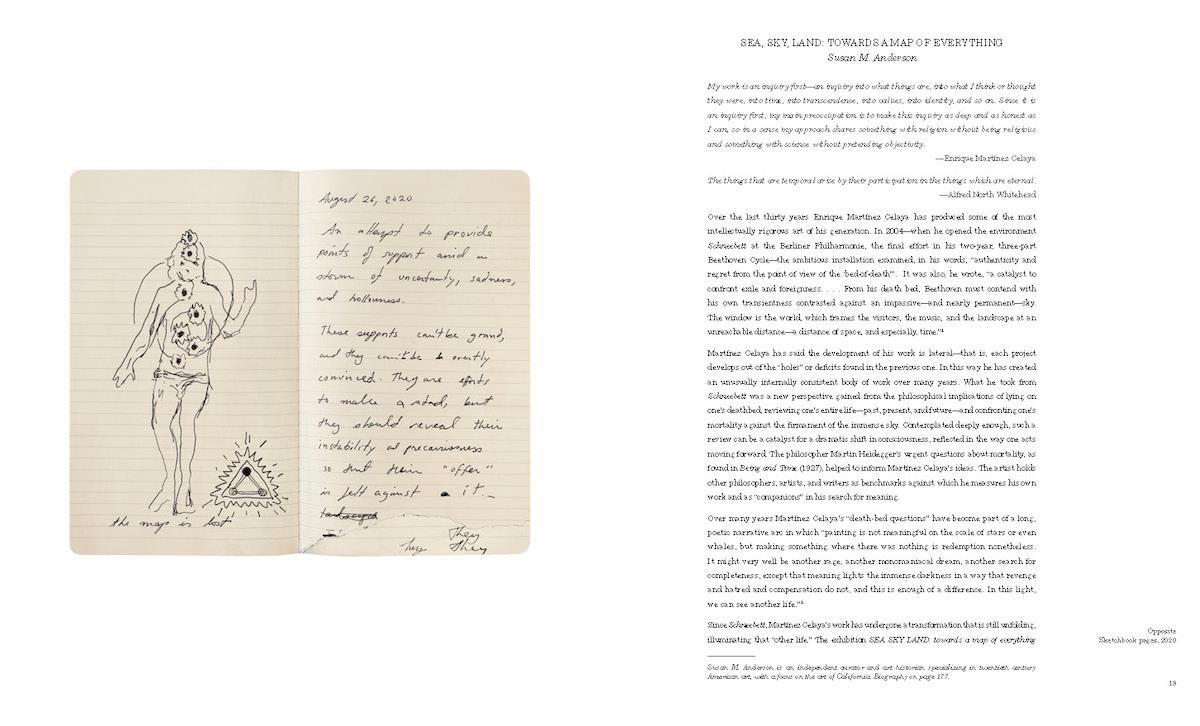 August 26, 2020
An attempt to provide
points of support amid a
storm of uncertainty, sadness,
and hollowness.
These supports can't be grand,
and they can't be overtly
convinced. They are efforts
to make a stand, but
they should reveal their
instability and precariousness
so that their "offer"
is felt against it.
They
they
the map is lost
SEA, SKY, LAND: TOWARDS A MAP OF EVERYTHING
Susan M. Anderson
My work is an inquiry first—an inquiry into what things are, into what I think or thought
they were, into time, into transcendence, into values, into identity, and so on. Since it is
an inquiry first, my main preoccupation is to make this inquiry as deep and as honest as
I can, so in a sense my approach shares something with religion without being religious
and something with science without pretending objectivity.
—Enrique Martínez Celaya
The things that are temporal arise by their participation in the things which are eternal.
—Alfred North Whitehead
Over the last thirty years Enrique Martínez Celaya has produced some of the most
intellectually rigorous art of his generation. In 2004—when he opened the environment
Schneebett at the Berliner Philharmonie, the final effort in his two-year, three-part
Beethoven Cycle—the ambitious installation examined, in his words, "authenticity and
regret from the point of view of the 'bed-of-death'". It was also, he wrote, "a catalyst to
confront exile and foreignness. . . . From his death bed, Beethoven must contend with
his own transientness contrasted against an impassive—and nearly permanent—sky.
The window is the world, which frames the visitors, the music, and the landscape at an
unreachable distance—a distance of space, and especially, time."1
Martínez Celaya has said the development of his work is lateral—that is, each project
develops out of the "holes" or deficits found in the previous one. In this way he has created
an unusually internally consistent body of work over many years. What he took from
Schneebett was a new perspective gained from the philosophical implications of lying on
one's deathbed, reviewing one's entire life—past, present, and future—and confronting one's
mortality against the firmament of the immense sky. Contemplated deeply enough, such a
review can be a catalyst for a dramatic shift in consciousness, reflected in the way one acts
moving forward. The philosopher Martin Heidegger's urgent questions about mortality, as
found in Being and Time (1927), helped to inform Martínez Celaya's ideas. The artist holds
other philosophers, artists, and writers as benchmarks against which he measures his own
work and as "companions" in his search for meaning.
Over many years Martínez Celaya's "death-bed questions" have become part of a long,
poetic narrative arc in which "painting is not meaningful on the scale of stars or even
whales, but making something where there was nothing is redemption nonetheless.
It might very well be another rage, another monomaniacal dream, another search for
completeness, except that meaning lights the immense darkness in a way that revenge
and hatred and compensation do not, and this is enough of a difference. In this light,
we can see another life."2
Since Schneebett, Martínez Celaya's work has undergone a transformation that is still unfolding,
illuminating that "other life." The exhibition SEA SKY LAND: towards a map of everything
Susan M. Anderson is an independent curator and art historian specializing in twentieth century
American art, with a focus on the art of California. Biography on page 177.
Opposite
Sketchbook pages, 2020
19